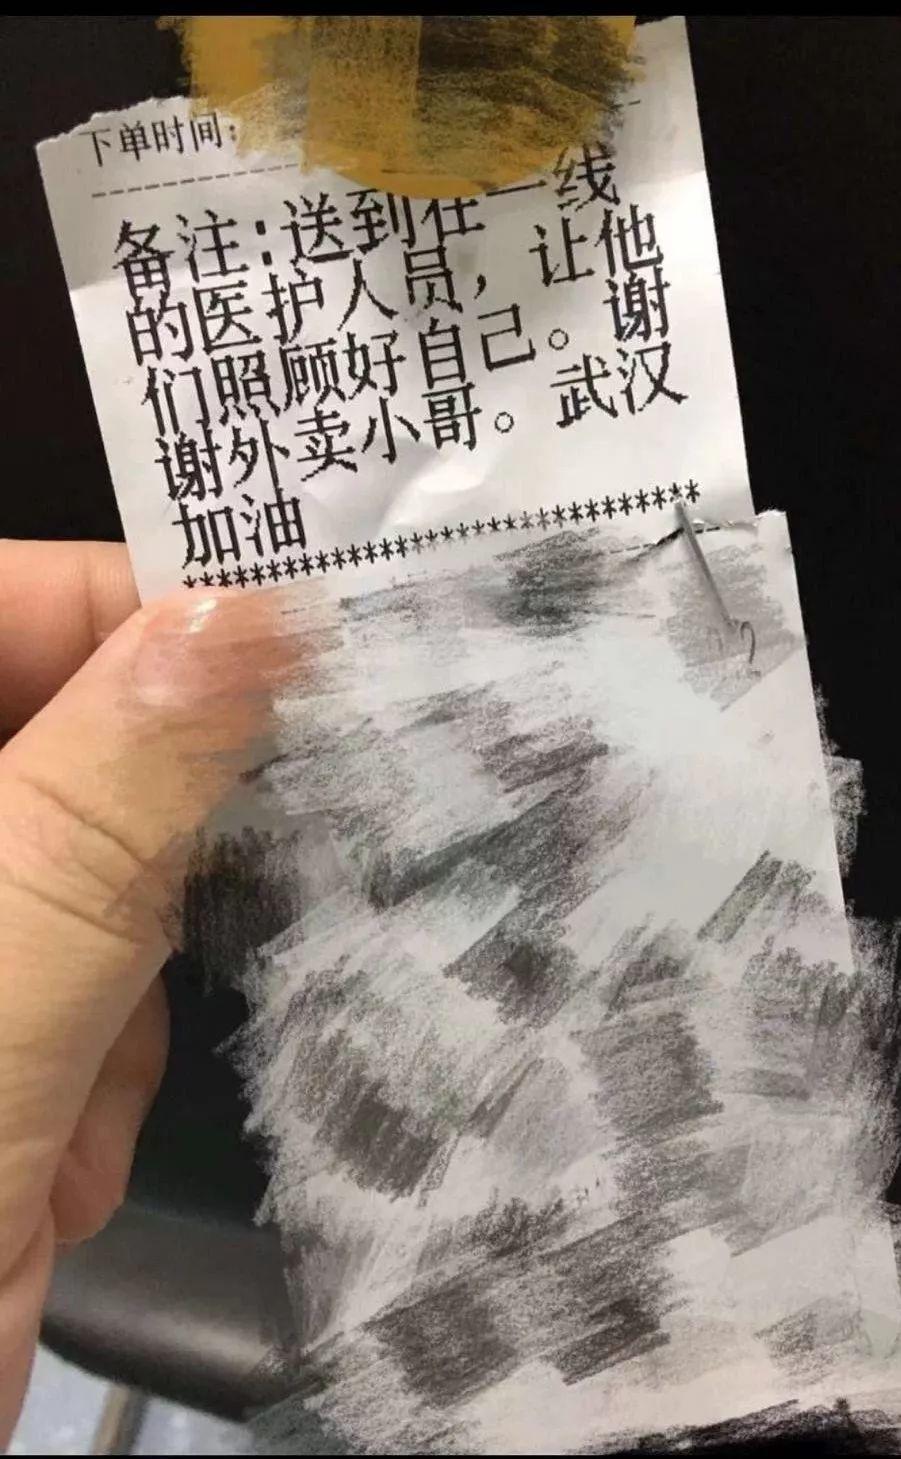 下单时间:
备注:送到在一线
的医护人员，让他
们照顾好自己。谢
谢外卖小哥。武汉
加油
**********************************